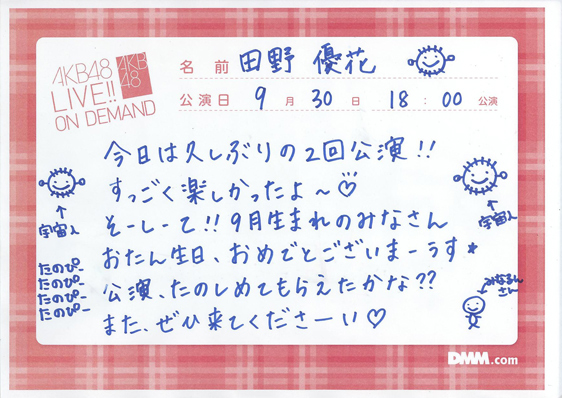 AKB48
LIVE!!
ON DEMAND
AKB
48
名前 田野 優花
公演日 9月30日 18:00公演
今日は久しぶりの2回公演!!
すっごく楽しかったよ～♡
そーしーて!!9月生まれのみなさん
おたん生日、おめでとございまーうす★
公演、たのしめてもらえたかな??
また、ぜひ来てくださーい♡
↑
宇宙人
たのぴー
たのぴー
たのぴー
たのぴー
↑
宇宙人
さん
DMM.com